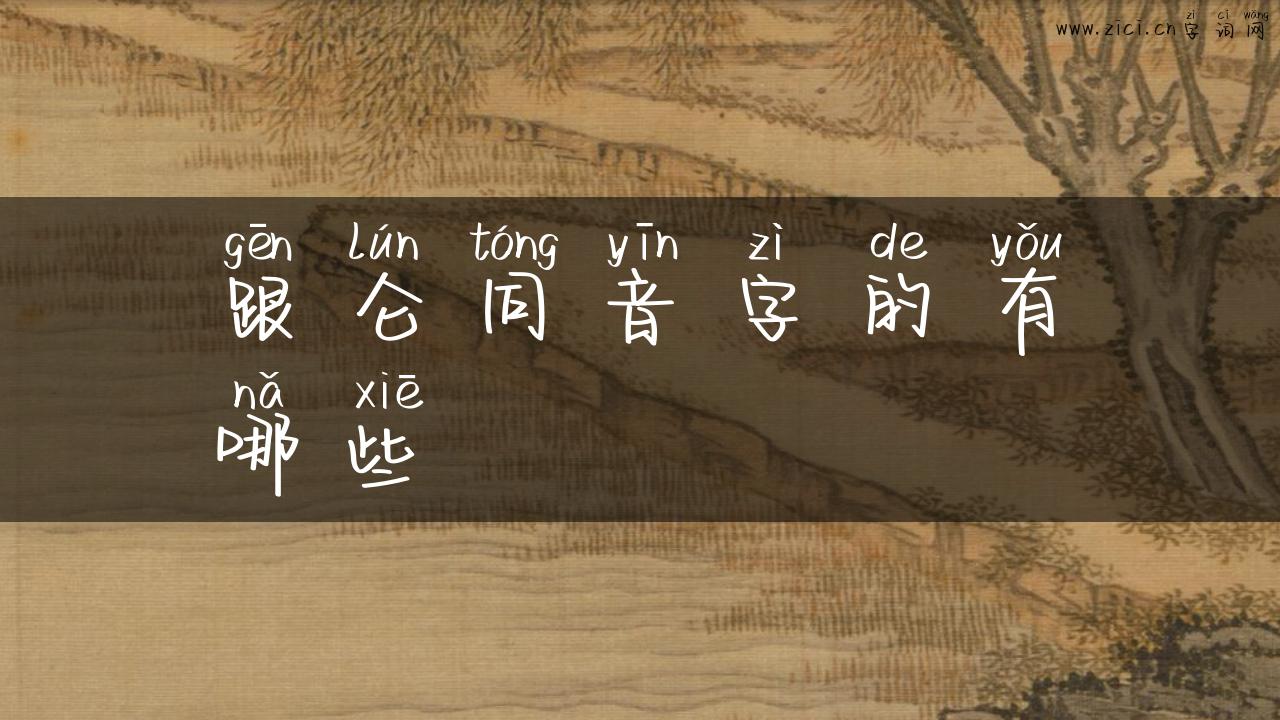 zì cí wǎng
www.zici.cn字词网
gēn lún tóng yīn zì de yǒu
跟仑同音字的有
nǎ xiē
哪些